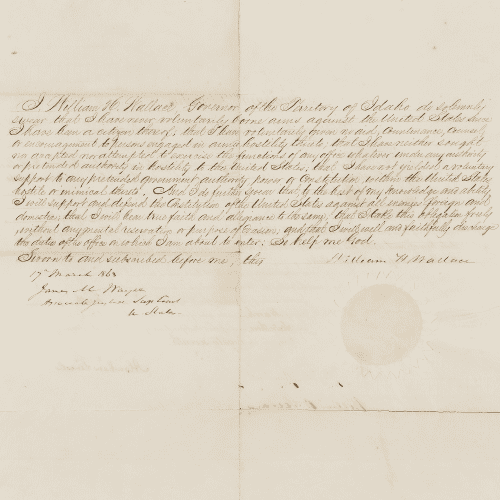 I William H. Wallace, Governor of the Territory of Idaho do solemnly
swear that I have never voluntarily borne arms against the United States since
I have been a citizen thereof; that I have voluntarily given no aid, countenance, counsel
or encouragement to persons engaged in armed hostility thereto; that I have neither sought
nor accepted nor attempted to exercise the functions of any office whatever under any authority
or pretended authority in hostility to the United States; that I have not yielded a voluntary
support to any pretended government, authority, power or Constitution within the United States
hostile or inimical thereto. And I do further swear that to the best of my knowledge and ability
I will support and defend the Constitution of the United States against all enemies foreign and
domestic; that I will bear true faith and allegiance to the same; that I take this obligation freely
without any mental reservation or purpose of evasion; and that I will well and faithfully discharge
the duties of the office on which I am about to enter; So help me God.
Sworn to and subscribed before me, this William H. Wallace
17th March 1863
James M. Wayne
Associate Justice Sup Court
U States